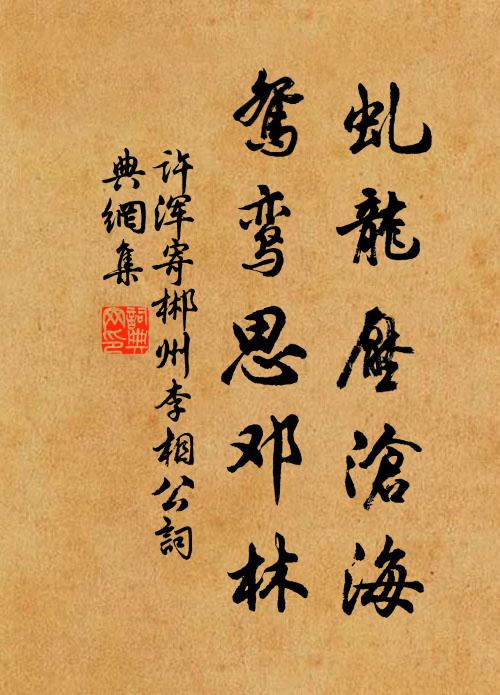 虬龍壓滄海
鴛鸾思邓林
许浑寄郴州李相公詞
典網集
詞典
网印